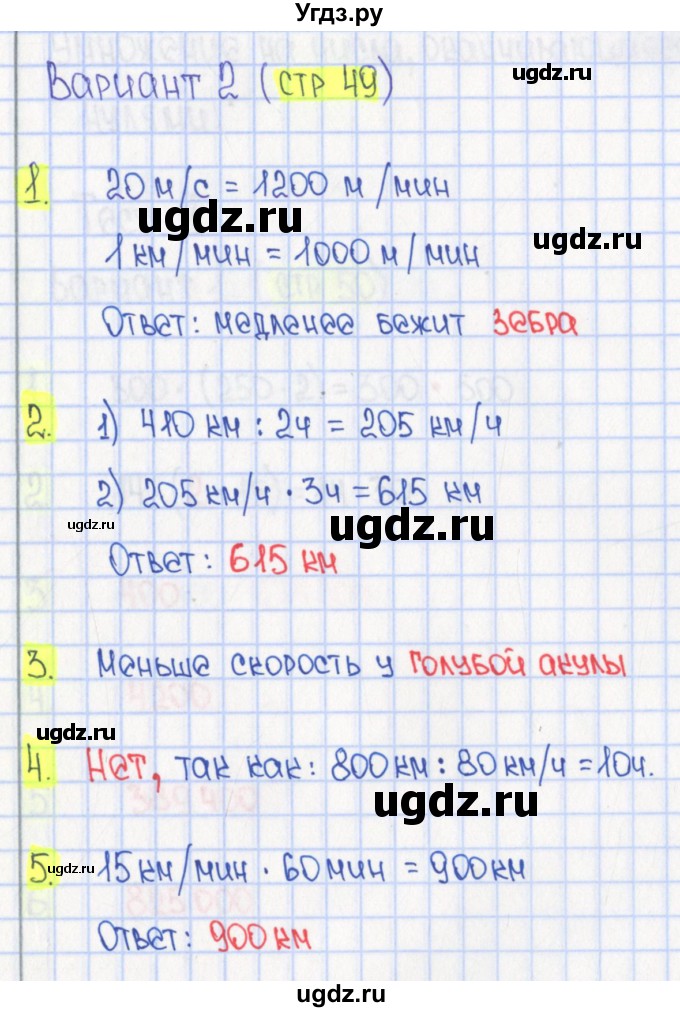 Угдз.ру
ugdz.ru
Вариант 2 (стр 49)
1. 20 м/с = 1200 м/мин
ugdz.ru
ugdz.ru
1 км/мин = 1000 м/мин
Ответ: медленее бежит зебра
2. 1) 410 км : 2ч = 205 км/ч
2) 205 км/ч · 3ч = 615 км
ugdz.ru
ugdz.ru
Ответ: 615 км
3. Меньше скорость у голубой акулы
ugdz.ru
4. Нет, так как: 800 км : 80 км/ч = 10ч.
ugdz.ru
5. 15 км/мин · 60 мин = 900 км
ugdz.ru
Ответ: 900 км
ugdz.ru
ugdz.ru